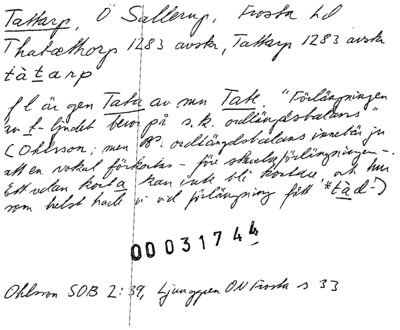 Tattarp, Ö Sallerup, Frosta hd
Thatæthorp 1283 avskr, Tattarp 1283 avskr
tàtarp
f l är gen Tata av mn Tate. "Förlängningen
av t-ljudet beror på s.k. ordlängdsbalans"
(Ohlsson; men obs. ordlängdsbalans innebär ju
att en vokal förkortas – före skvelsförlängningen –.
Ett redan kort a kan inte bli kortare, och hur
som helst hade vi vid förlängning fått *tàd-)
00031744
Ohlsson SOB 2:39, Ljunggren ON Frosta s 33